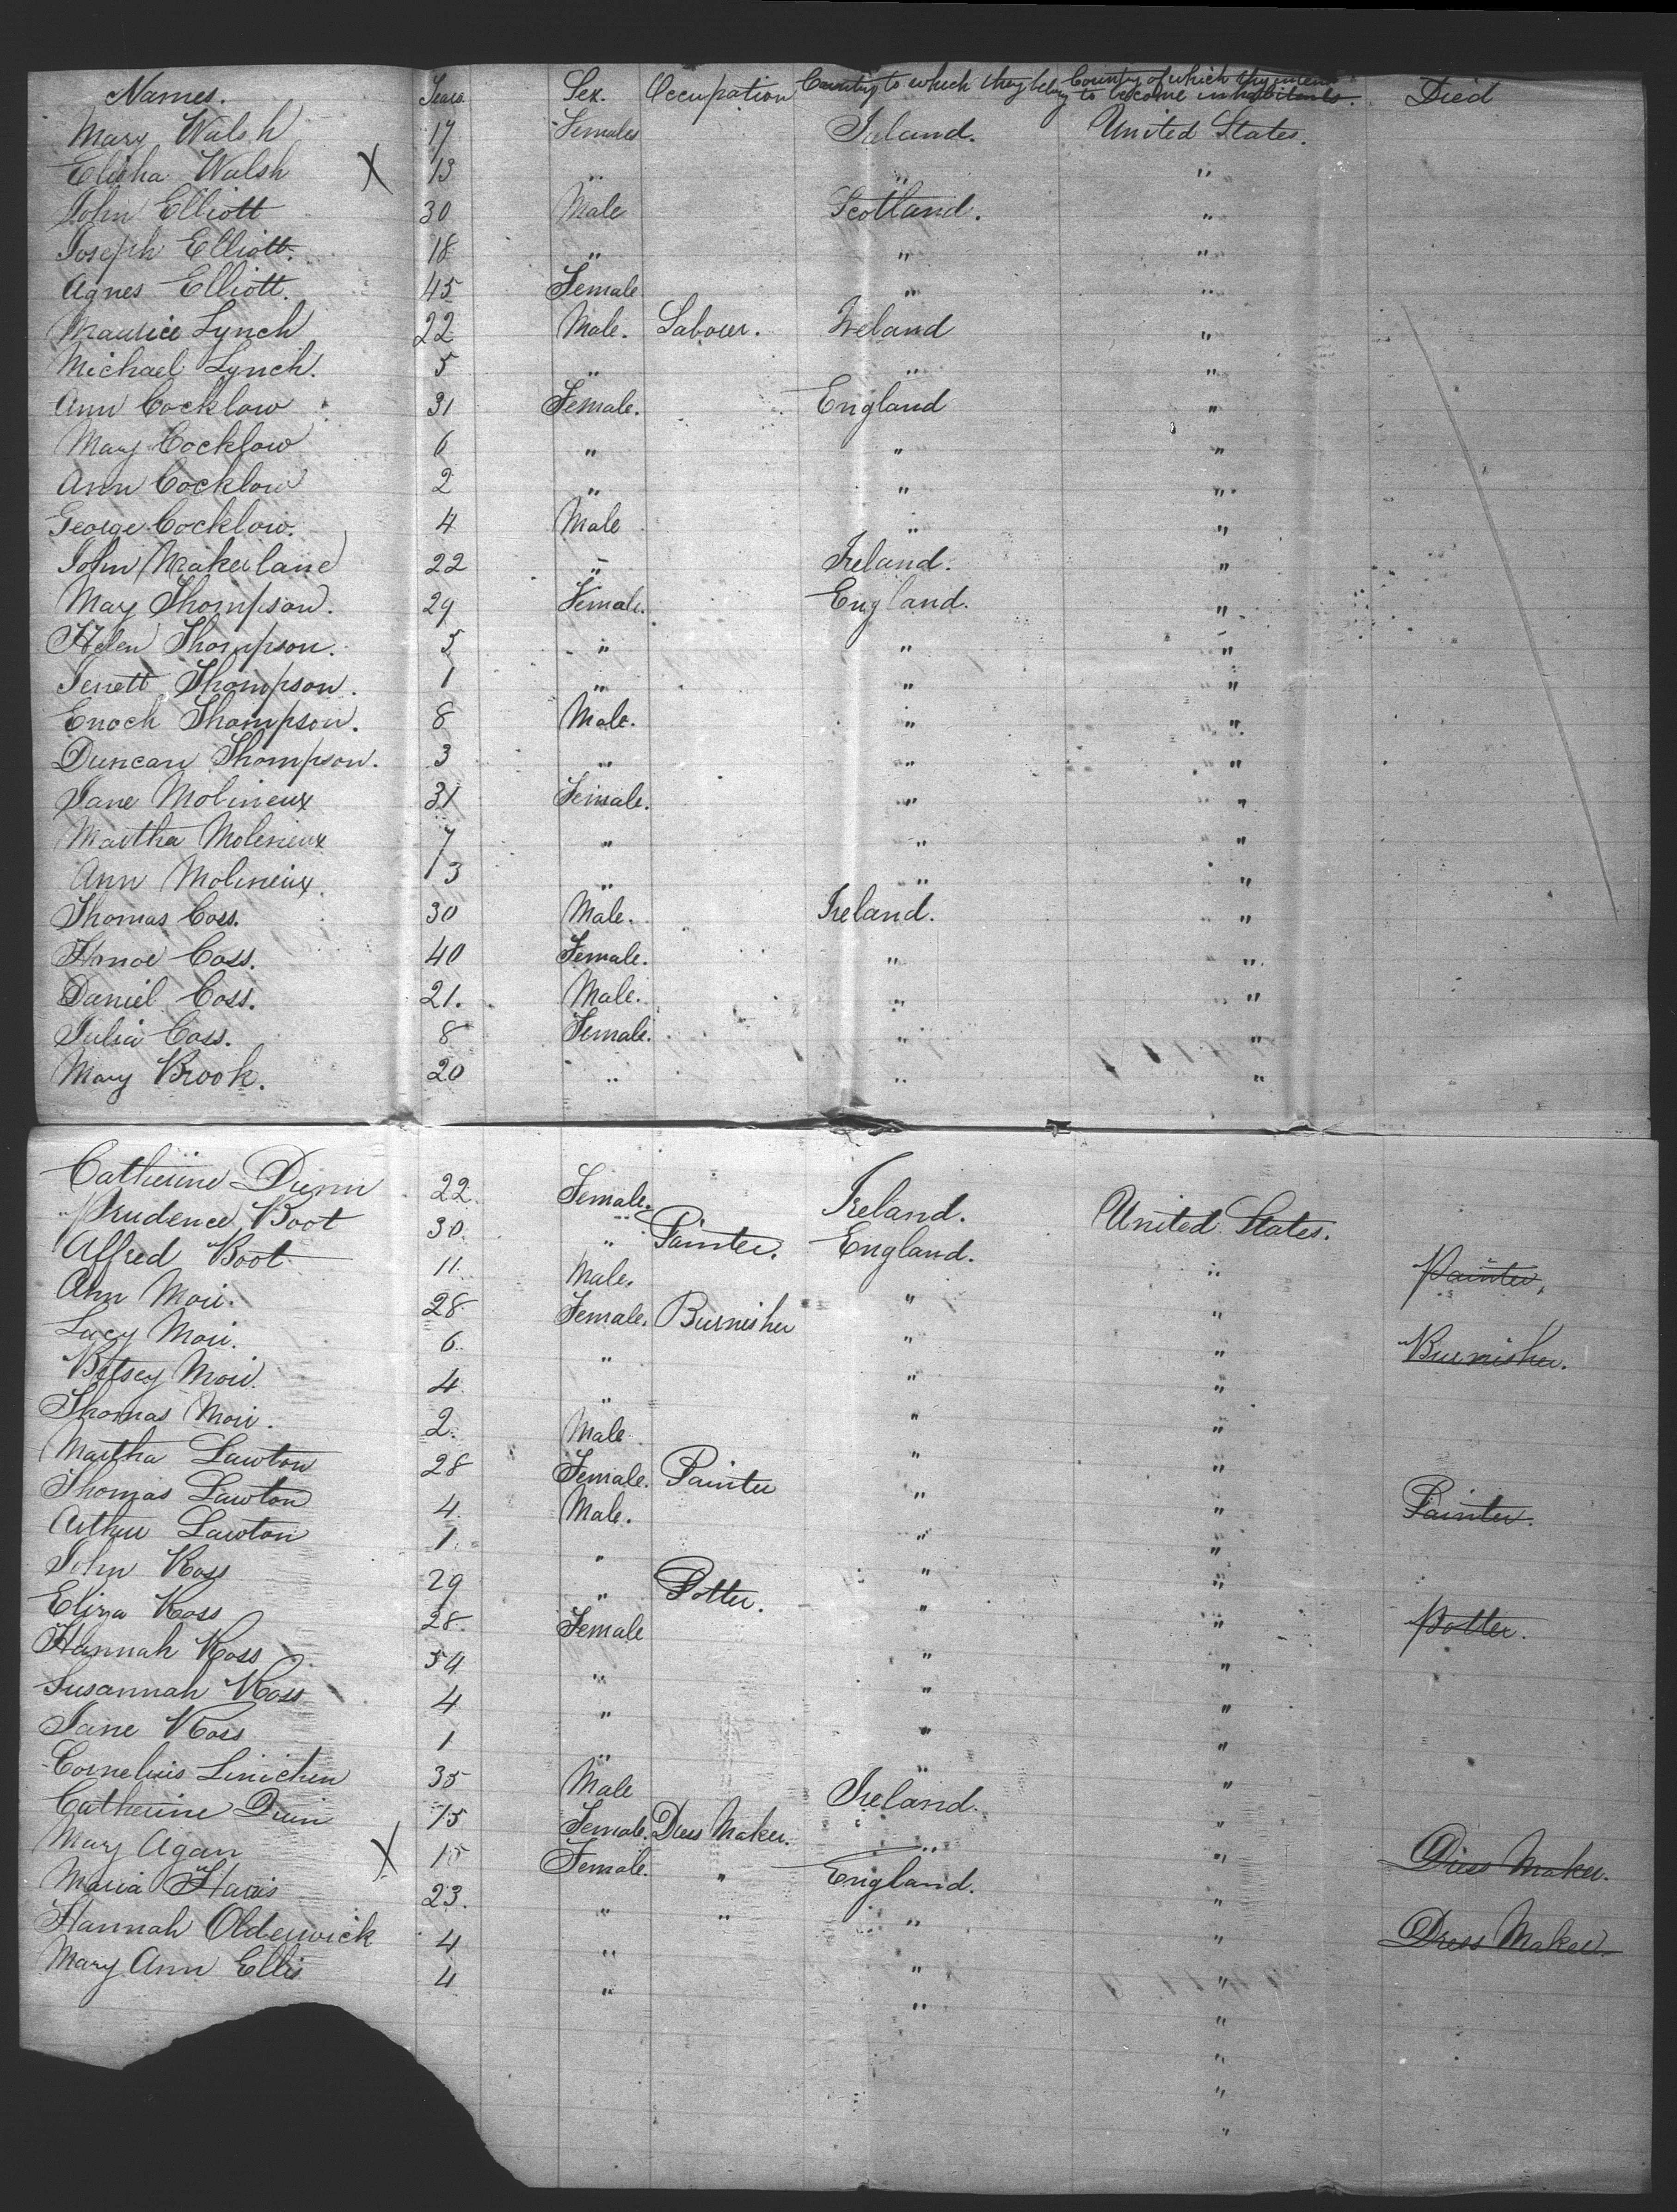 Names. Years. Sex. Occupation Country to which they belong Country of which they intend to become inhabitants. Died
Mary Walsh 17 Females Ireland. United States.
Elisha Walsh X 13 " " "
John Elliott 30 Male Scotland. "
Joseph Elliott. 18 " " "
Agnes Elliott. 45 Female " "
Maurice Lynch 22 Male. Labourer. Ireland "
Michael Lynch. 5 " " "
Ann Cocklow 31 Female. England "
Mary Cocklow 6 " " "
Ann Cocklow 2 " " "
George Cocklow. 4 Male " "
John Makerlane 22 " Ireland. "
May Thompson. 29 Female. England. "
Helen Thompson. 5 " " "
Jenett Thompson. 1 " " "
Enoch Thompson. 8 Male. " "
Duncan Thompson. 3 " " "
Jane Molineux 31 Female. " "
Martha Molineux 7 " " "
Ann Molineux. 3 " " "
Thomas Coss. 30 Male. Ireland. "
Coss. 40 Female. " "
Daniel Coss. 21. Male. " "
Julia Coss. 8 Female. " "
Mary Brook. 20 " " "
Catherine Dunn 22. Female. Ireland. United States.
Prudence Boot 30. " Painter. England. "
Alfred Boot 11. Male. " " Painter.
Ann Moir. 28 Female. Burnisher " "
Lucy Moir. 6 " " " Burnisher.
Betsey Moir. 4 " " "
Thomas Moir. 2. Male " "
Martha Lawton 28 Female. Painter " "
Thomas Lawton 4 Male. " " Painter.
Arthur Lawton 1. " " "
John Ross 29 " Potter. " "
Eliza Ross 28. Female " " Potter.
Hannah Ross 54 " " "
Susannah Ross 4 " " "
Jane Ross 1 " " "
Cornelius Linichen 35 Male Ireland. "
Catherine Dunn 15 Female. Dress Maker. " "
Mary Agan X 15 Female. " England. " Dress Maker.
Maria Harris 23. " " " "
Hannah Olderwick 4 " " " Dress Maker.
Mary Ann Ellis 4 " " "
"
"
"
"